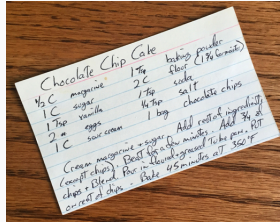 Chocolate Chip Cake
1/2 C margarine
1 C sugar
1 Tsp vanilla
2 eggs
1 C sour cream
1 Tsp baking powder
2 C flour (1 3/4 for muffins)
soda
1/4 Tsp salt
1 bag chocolate chips
Cream margarine + sugar. Add rest of ingredients
(except chips). Beat for a few minutes. Add 3/4 of
chips + Blend. Pour in floured + greased Tube pan. Put
on rest of chips. Bake 45 minutes at 350°F